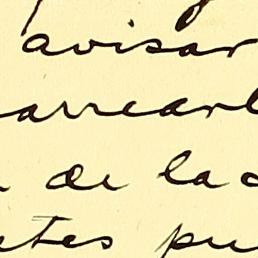 avisar
arrearl
de la
tes pu